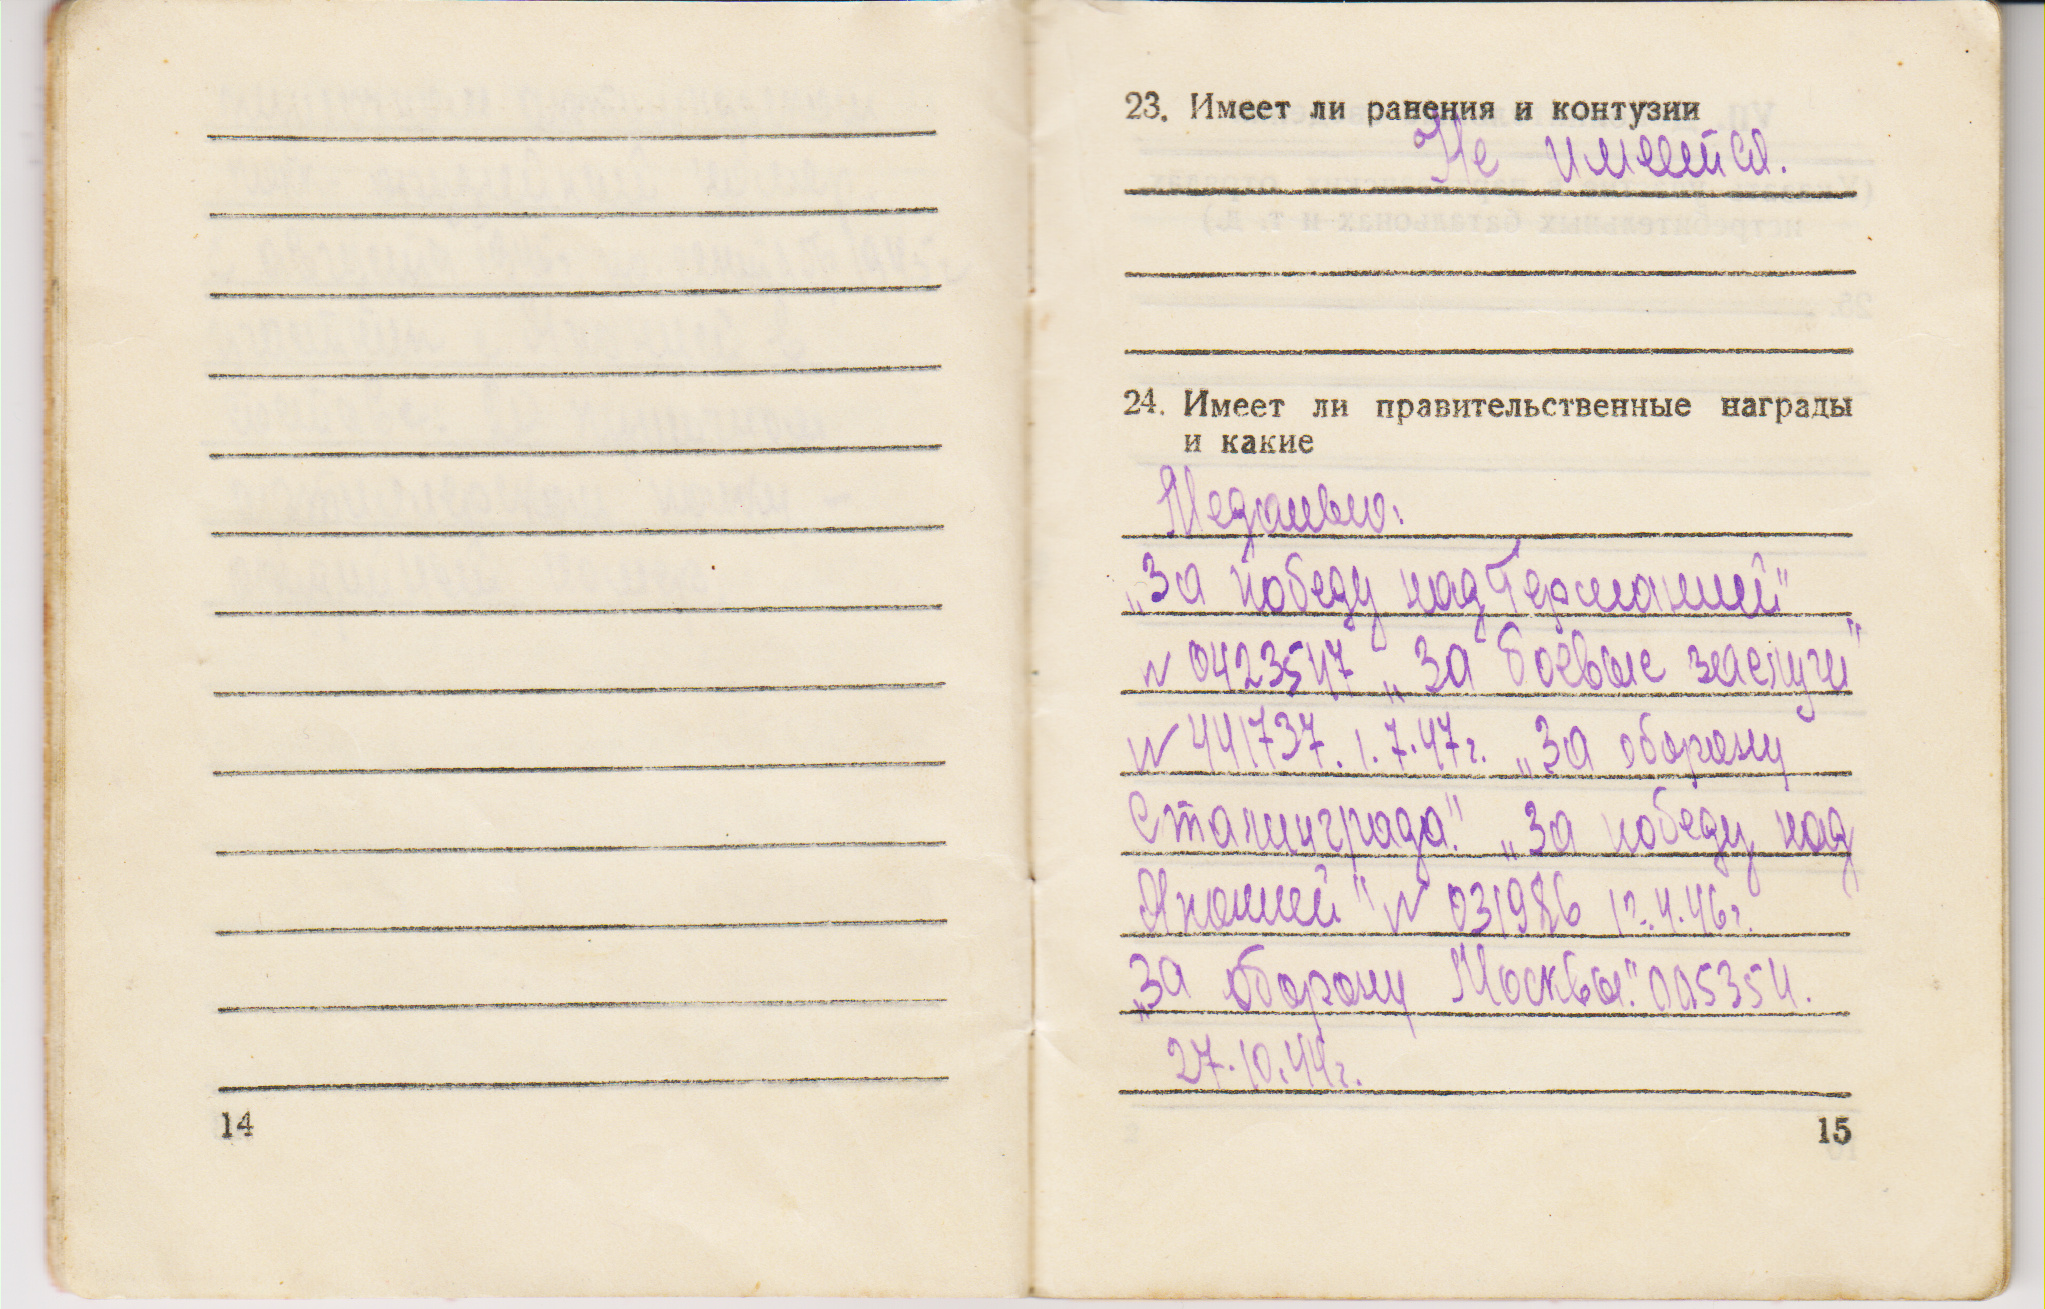 23. Имеет ли ранения и контузии
Не имеется.
24. Имеет ли правительственные награды
и какие
Медалью:
„За победу над Германией"
N 0423547 „За боевые заслуги"
N 441737. 1.7.47г. „За оборону
Сталинграда." „За победу над
Японией" N 031986 12.4.46г.
„За оборону Москвы." 005354.
27.10.44г.
14
15